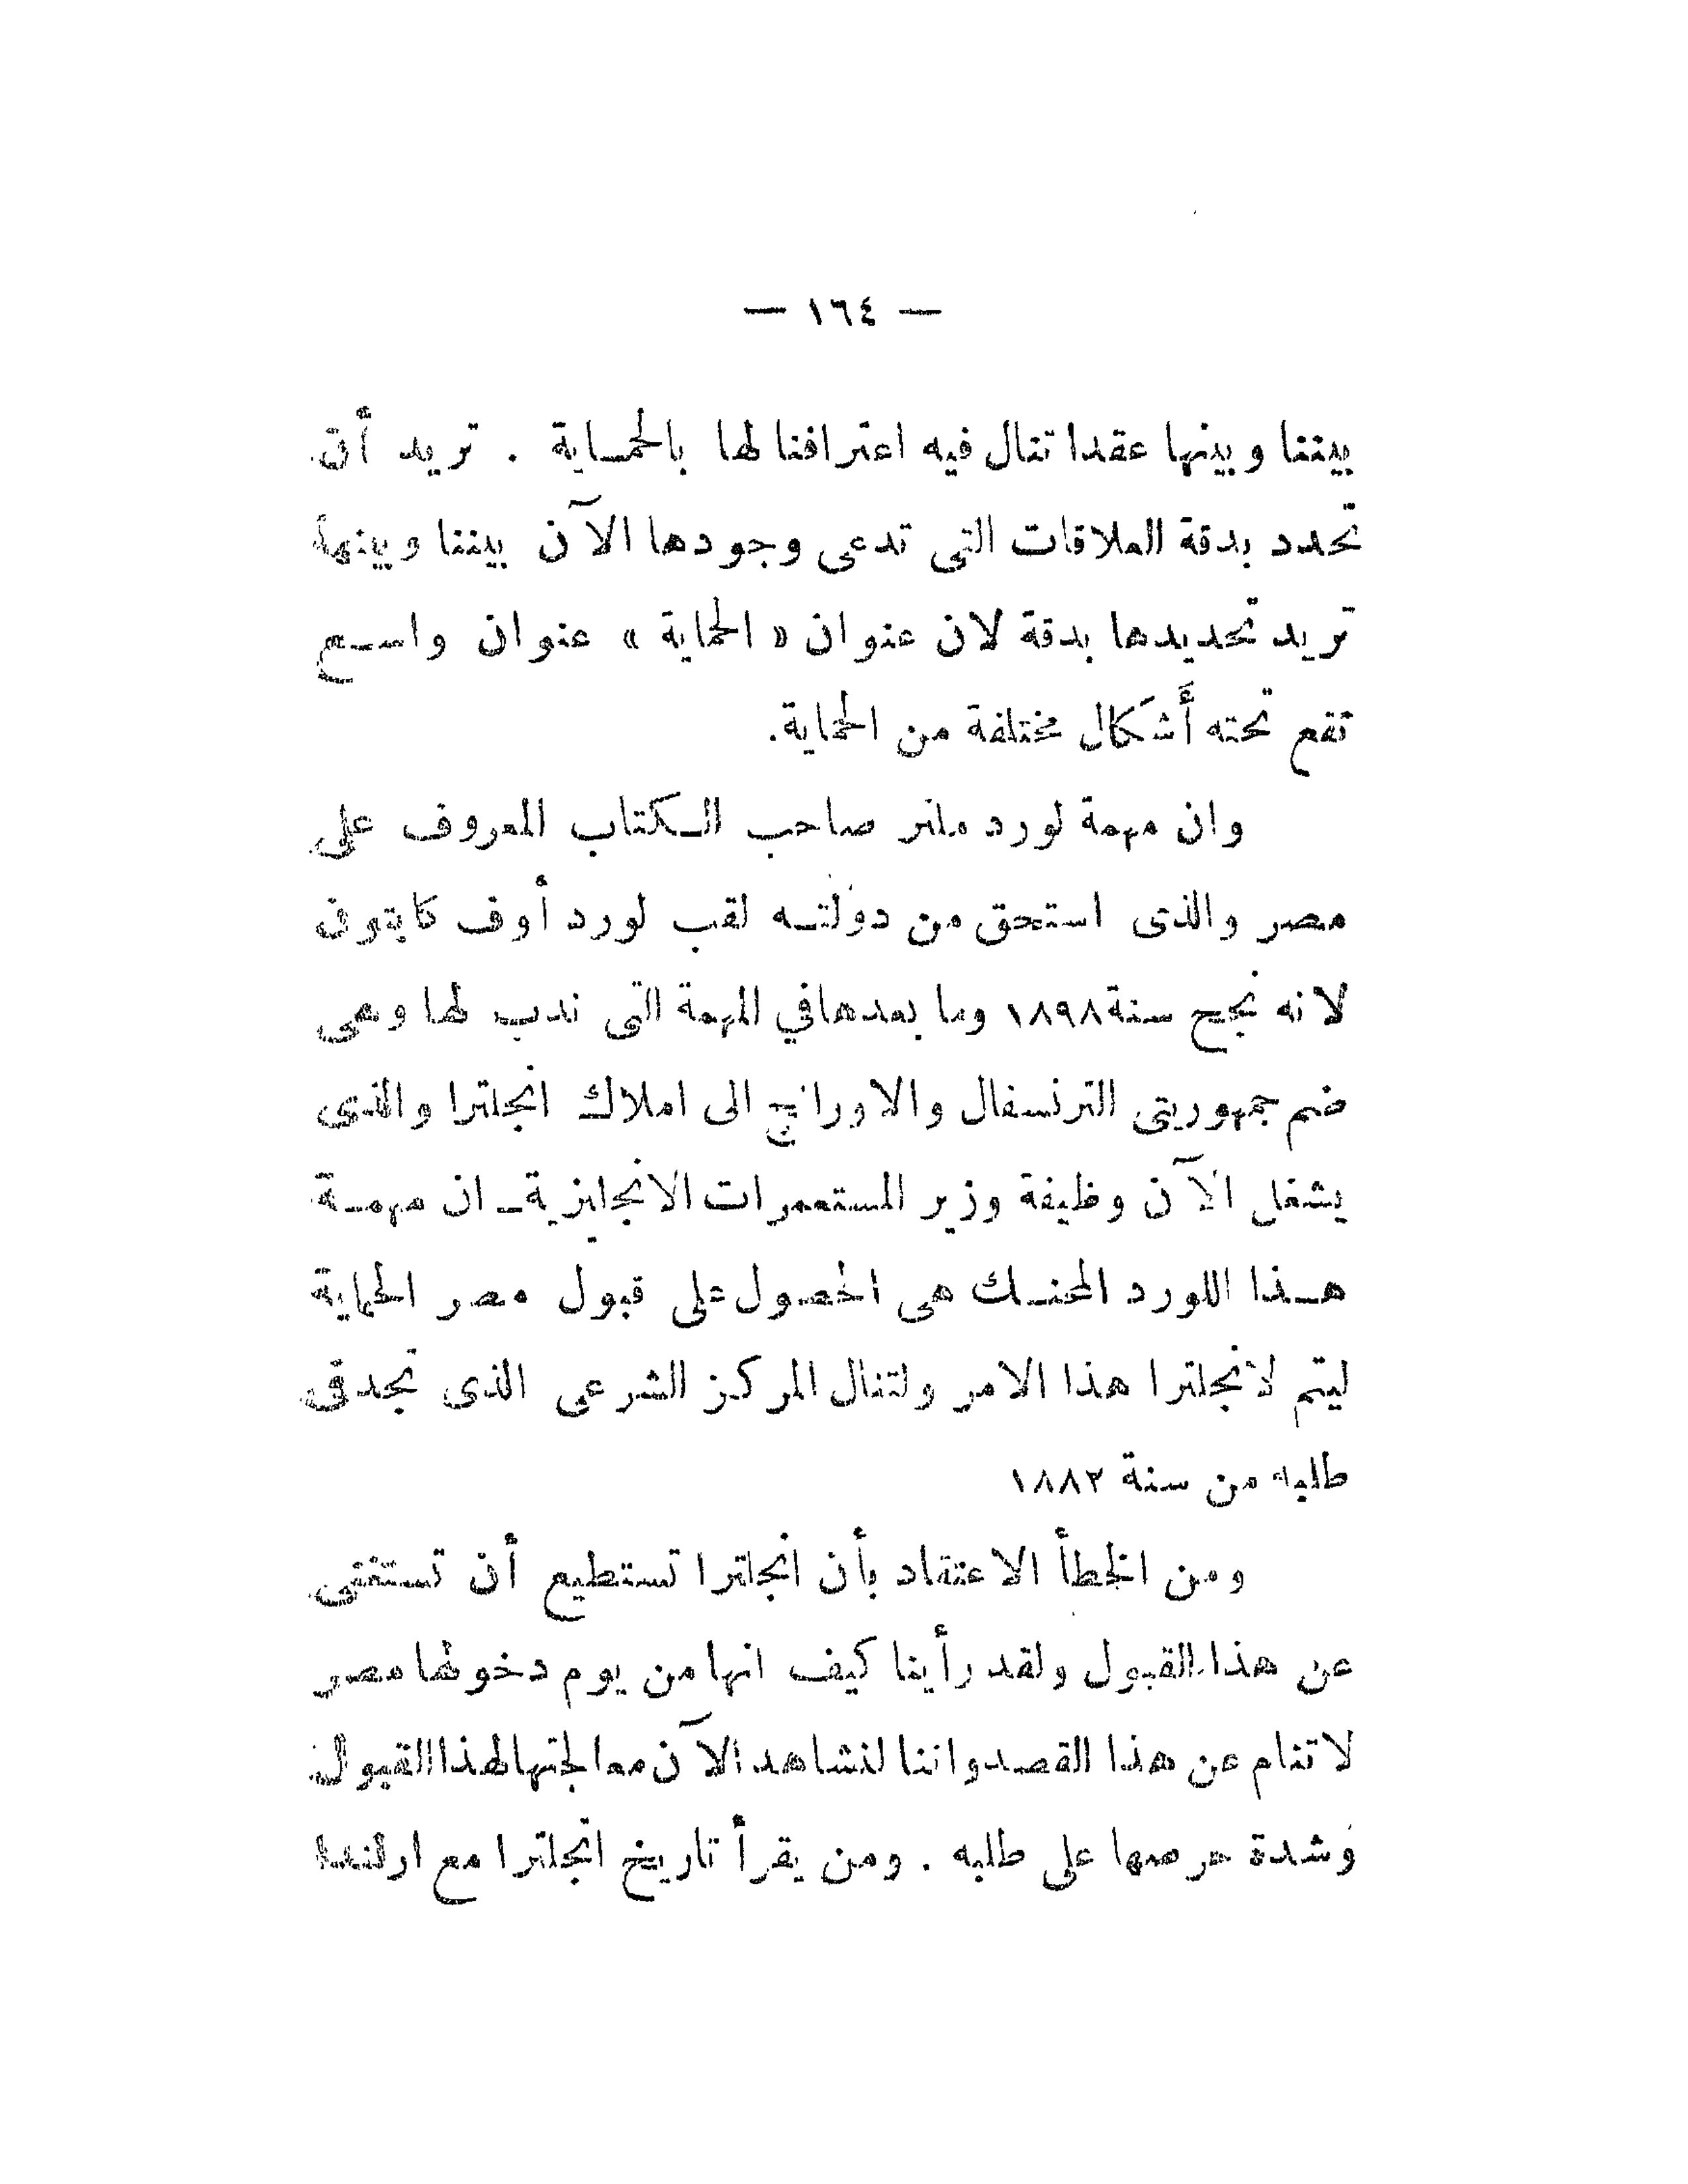 — ١٦٤ —
بيننا وبينها عقدا تنال فيه اعترافنا لها بالحماية . تريد أن
تحدد بدقة العلاقات التى تدعى وجودها الآن بيننا وبينها
تريد تحديدها بدقة لان عنوان « الحماية » عنوان واسع
تقع تحته أشكال مختلفة من الحماية.
وان مهمة لورد ملنر صاحب الكتاب المعروف على
مصر والذى استحق من دولته لقب لورد أوف كابتون
لانه نجح سنة ١٨٩٨ وما بعدها في المهمة التى ندب لها وهى
ضم جمهوريتى الترنسفال والاورانج الى املاك انجلترا والذى
يشغل الآن وظيفة وزير المستعمرات الانجليزية ـ ان مهمة
هذا اللورد المحنك هى الحصول على قبول مصر الحماية
ليتم لانجلترا هذا الامر ولتنال المركز الشرعى الذى تجد فى
طلبه من سنة ١٨٨٢
ومن الخطأ الاعتقاد بأن انجلترا تستطيع أن تستغنى
عن هذا القبول ولقد رأينا كيف انها من يوم دخولها مصر
لا تنام عن هذا القصد واننا لنشاهد الآن معالجتها لهذا القبول
وشدة حرصها على طلبه . ومن يقرأ تاريخ انجلترا مع ارلندا